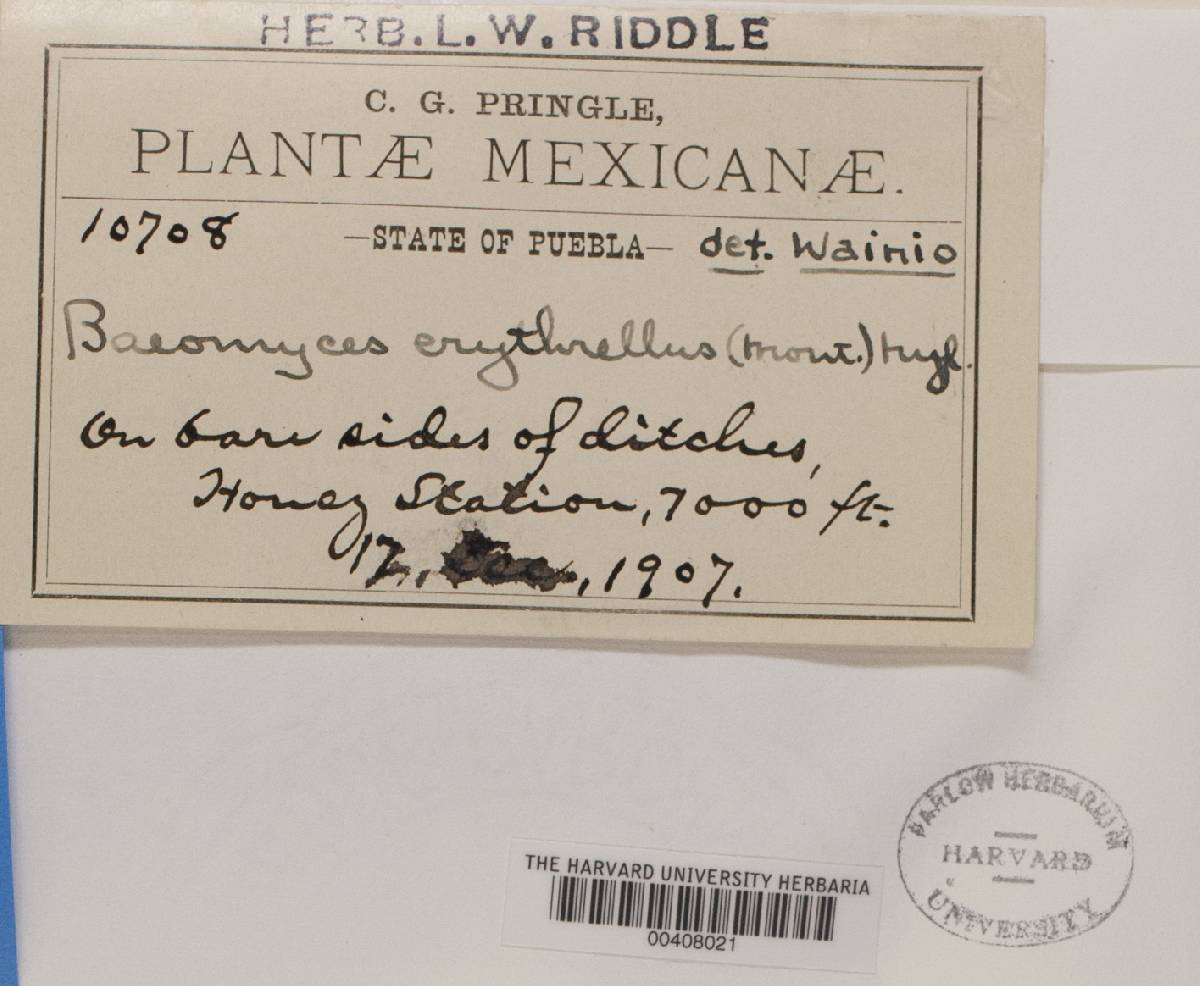 HERB. L. W. RIDDLE
C. G. PRINGLE,
PLANTÆ MEXICANÆ.
10708 —STATE OF PUEBLA— det. Wainio
Baeomyces erythrellus (Mont.) Nyl.
On bare sides of ditches,
Honey Station, 7000 ft.
12, , 1907.
FARLOW HERBARIUM
HARVARD
UNIVERSITY
THE HARVARD UNIVERSITY HERBARIA
00408021